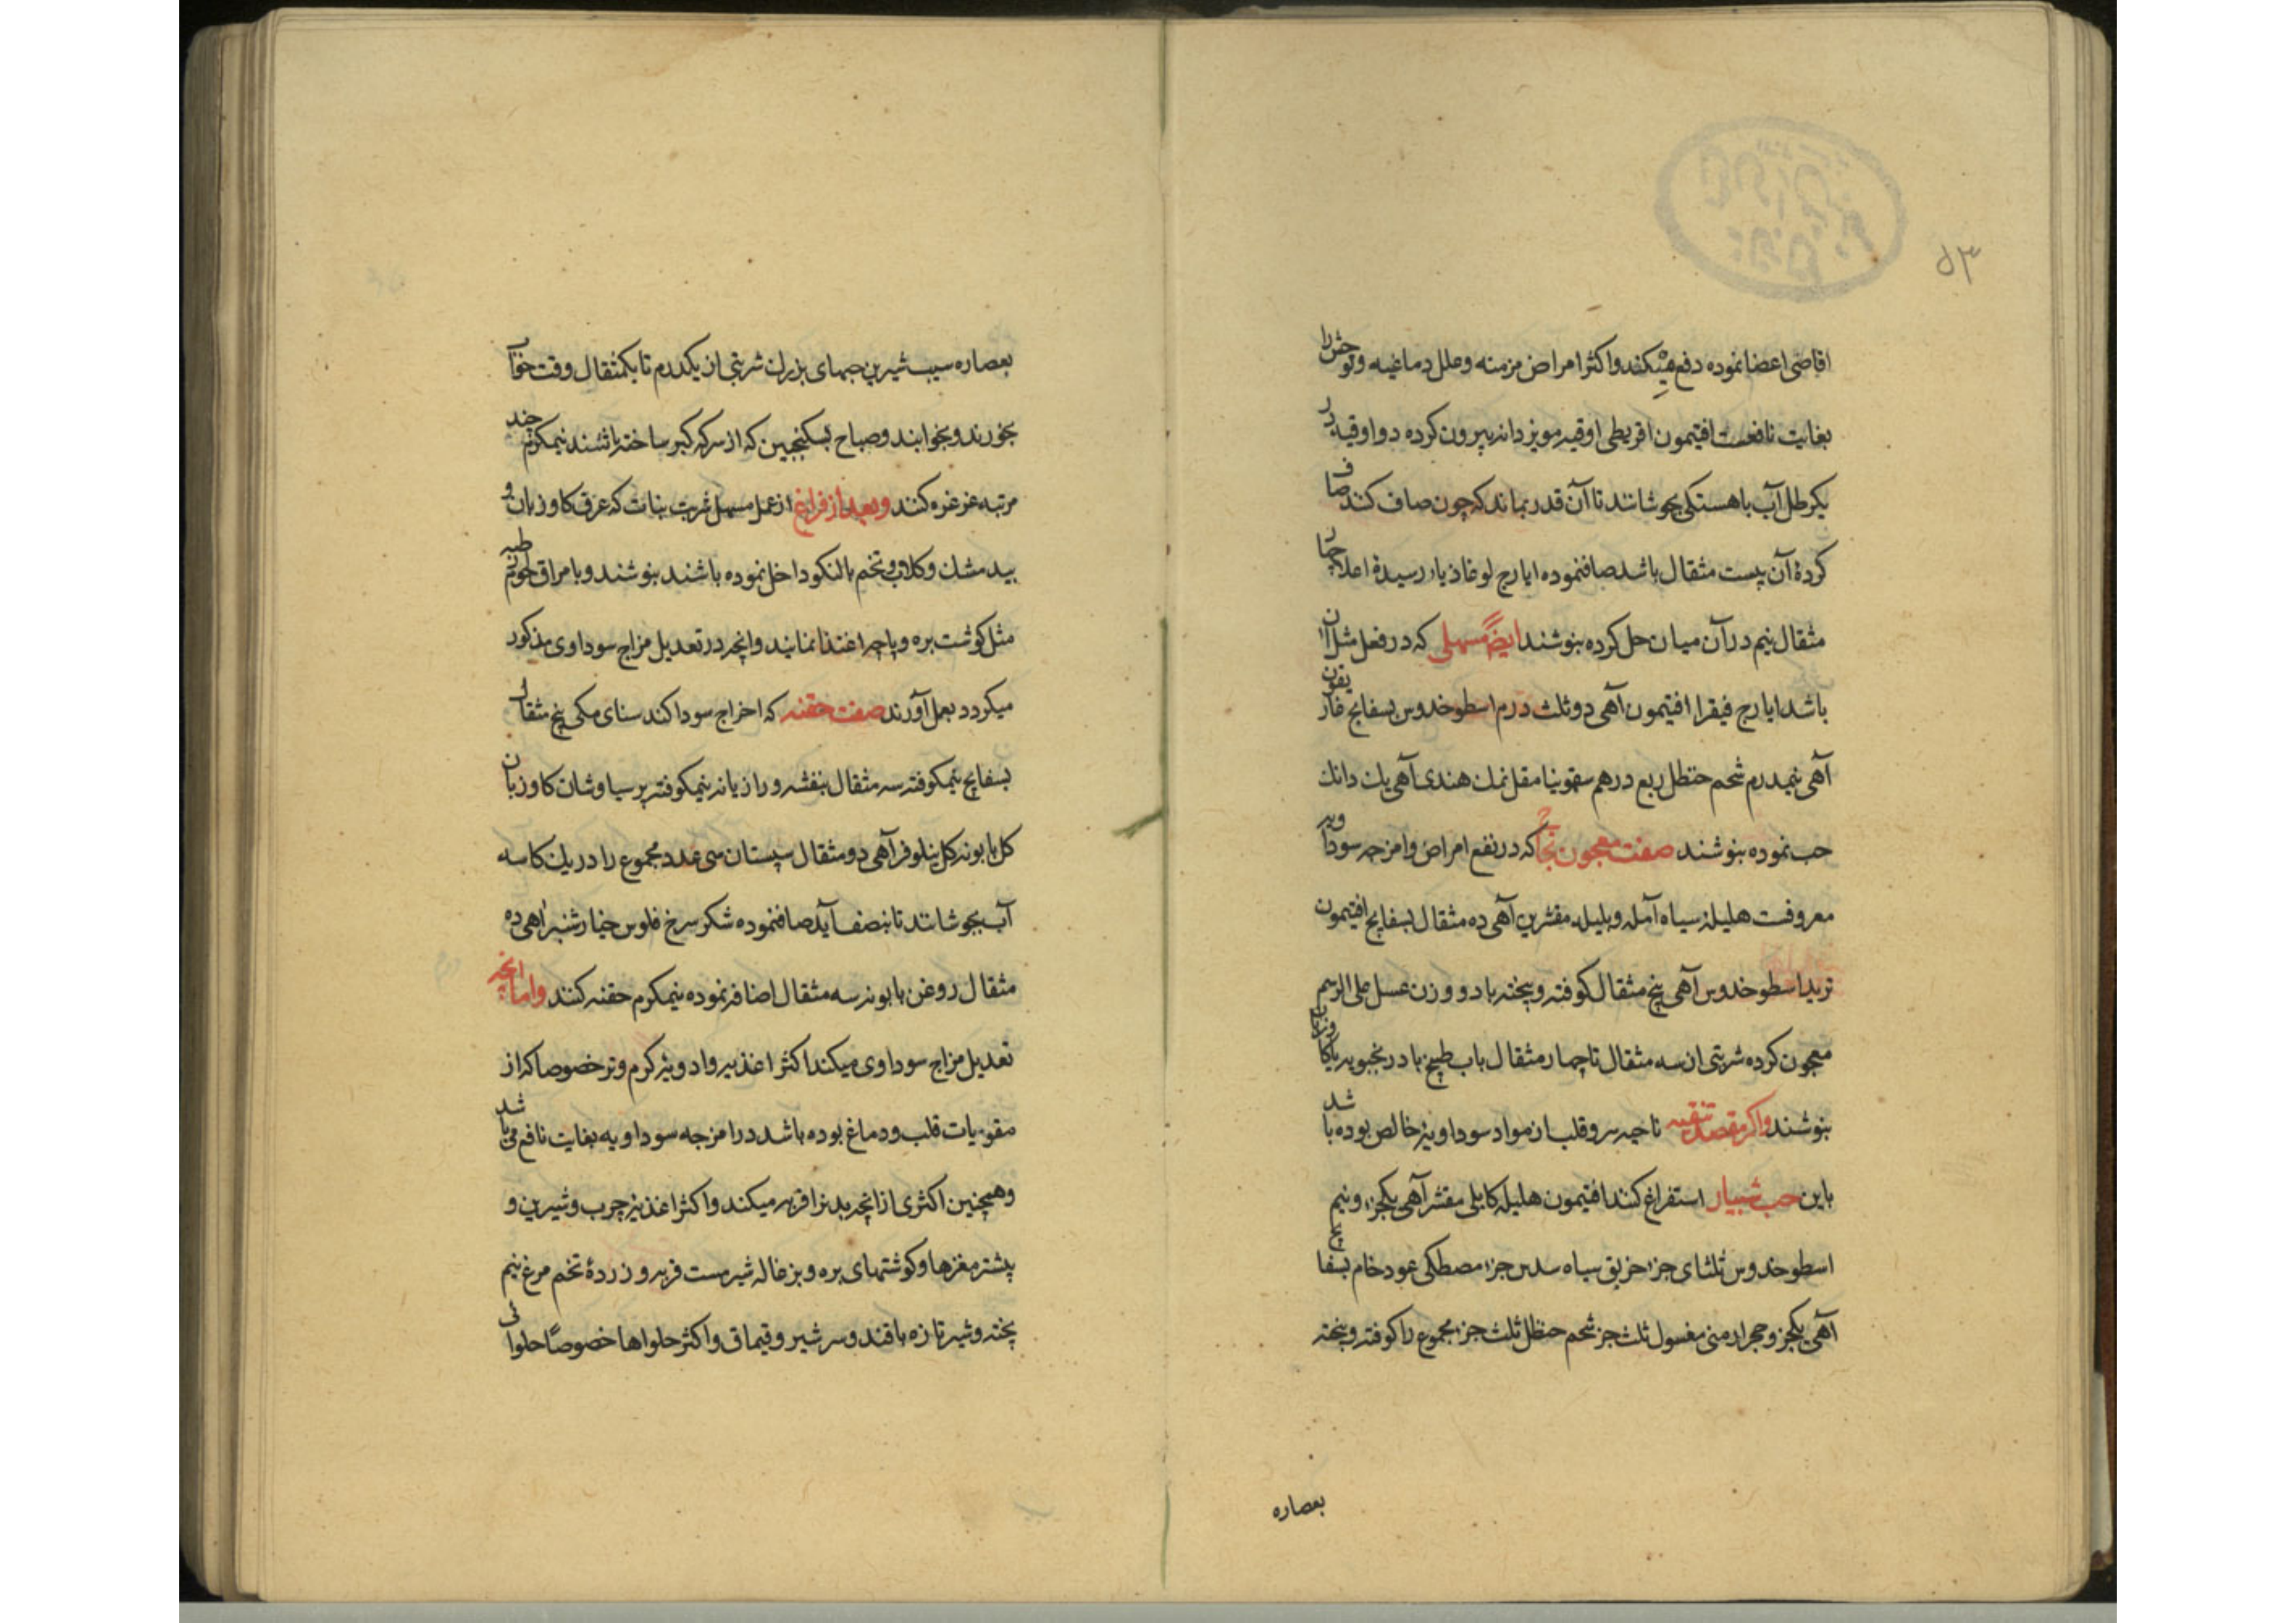 ۵۳
اقاصی اعضا نموده دفع میکند و اکثر امراض مزمنه و علل دماغیه و توحش را
بغایت نافعست افتیمون اقریطی اوقیه مویز دانه بیرون کرده دو اوقیه در
یکرطل آب باهستکی بجوشانند تا آن قدر بماند که چون صاف کنند صاف
کردهٔ آن بیست مثقال باشد صافنموده ایارج لوغاذیا رسیده اعلا چهار
مثقال نیم در آن میان حل کرده بنوشند ایضاً مسهلی که در فعل مثل آن
باشد ایارج فیقرا افتیمون آهی دو ثلث درم اسطوخدوس بسفایج غاریقون
آهی نیمدرم شحم حنظل ربع درهم سقمونیا مقل نمک هندی آهی یک دانک
حب نموده بنوشند صفت معجون نجاح که در نفع امراض و امزجه سوداویه
معروفست هلیلهٔ سیاه آمله و بلیله مقشرین آهی ده مثقال بسفایج افتیمون
تربد اسطوخدوس آهی پنج مثقال کوفته و بیخته با دو وزن عسل علی الرسم
معجون کرده شربتی از سه مثقال تا چهار مثقال باب طبیخ بادرنجبویه یا کاوزبان
بنوشند واکر مقصد تنقیه ناحیه سر و قلب از مواد سوداویهٔ خالص بوده باشد
باین حب شبیار استفراغ کنند افتیمون هلیله کابلی مقشر آهی یکجزء و نیم
اسطوخدوس ثلثای جزء خربق سیاه سدس جزء مصطکی عود خام بسفایج
آهی یکجز و حجر ارمنی مغسول ثلث جز شحم حنظل ثلث جز مجموع را کوفته و بیخته
بعصاره
بعصاره سیب شیرین حبهای بزرک شربتی از یکدرم تا یکمثقال وقت خواب
بخورند و بخوابند و صباح بسکنجبین که از سرکه کبر ساخته باشند نیمکرم چند
مرتبه غرغره کنند و بعد از فراغ از عمل مسهل شربت نبات که عرق کاوزبان و
بید مشک و کلاب و تخم بالنکو داخل نموده باشند بنوشند و بامراق لحوم رطبه
مثل کوشت بره و پاچه اغتذا نمایند وانچه در تعدیل مزاج سوداوی مذکور
میکردد بعمل آورند صفت حقنه که اخراج سودا کند سنای مکی پنج مثقال
بسفایج نیمکوفته سه مثقال بنفشه و رازیانه نیمکوفته پرسیاوشان کاوزبان
کل بابونه کل نیلوفر آهی دو مثقال سپستان سی عدد مجموع را در یک کاسه
آب بجوشانند تا بنصف آید صافنموده شکر سرخ فلوس خیارشنبر آهی ده
مثقال روغن بابونه سه مثقال اضافه نموده نیمکرم حقنه کنند واما انچه
تعدیل مزاج سوداوی میکند اکثر اغذیه و ادویهٔ کرم و تر خصوصا که از
مقویات قلب و دماغ بوده باشد در امزجه سوداویه بغایت نافع می باشد
وهمچنین اکثری از انچه بدنرا فربه میکند و اکثر اغذیهٔ چرب و شیرین و
بیشتر مغزها و کوشتهای بره و بزغاله شیرمست فربه و زردهٔ تخم مرغ نیم
پخته و شیر تازه با قند و سر شیر و قیماق و اکثر حلواها خصوصاً حلوای